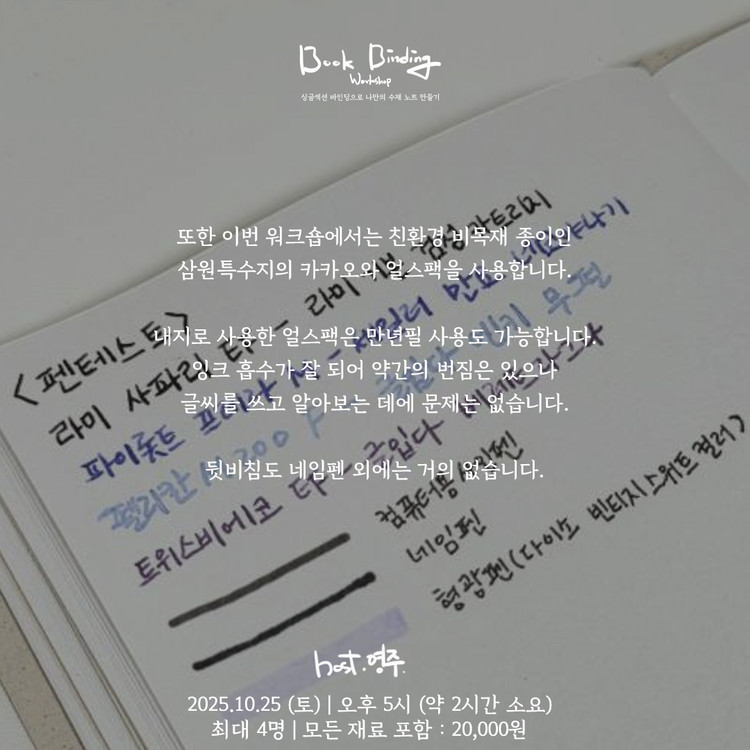 Book Binding
Workshop
싱글섹션 바인딩으로 나만의 수제 노트 만들기
또한 이번 워크숍에서는 친환경 비목재 종이인
삼원특수지의 카카오와 얼스팩을 사용합니다.
내지로 사용한 얼스팩은 만년필 사용도 가능합니다.
잉크 흡수가 잘 되어 약간의 번짐은 있으나
글씨를 쓰고 알아보는 데에 문제는 없습니다.
뒷비침도 네임펜 외에는 거의 없습니다.
<펜테스트>
라미 사파리 EF - 라미
파이롯트 프레라 M -
펠리칸 M200 F
트위스비에코 EF -
컴퓨터용
네임펜
형광펜(다이소 빈티지스위트컬러)
host.영주
2025.10.25 (토) | 오후 5시 (약 2시간 소요)
최대 4명 | 모든 재료 포함 : 20,000원